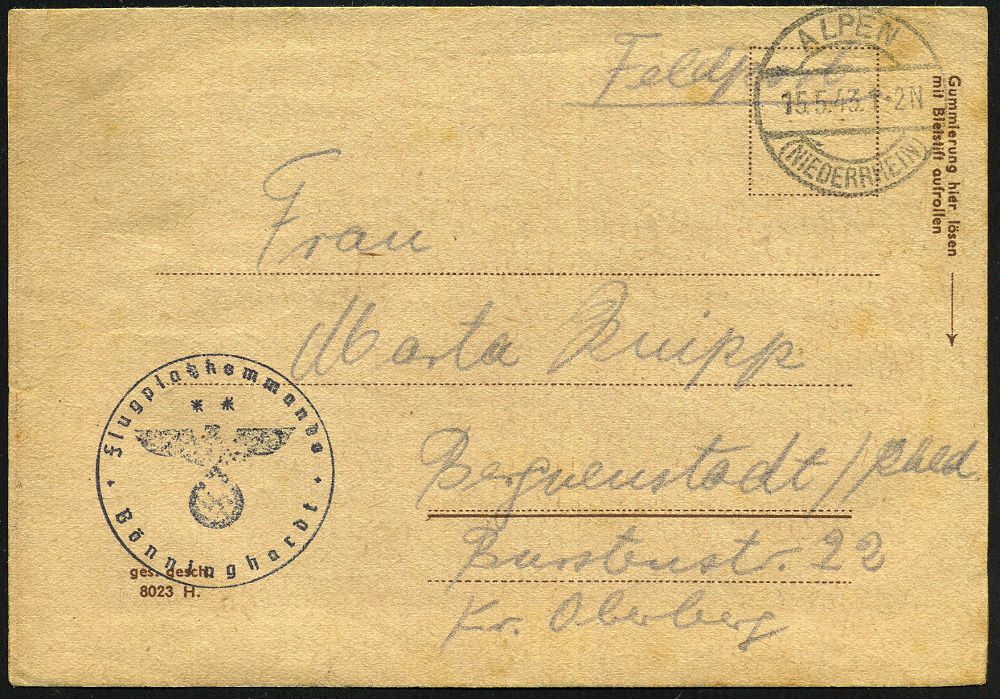 Feldpost
ALPEN
15.5.43.1-2N
(NIEDERRHEIN)
Gummierung hier lösen
mit Bleistift aufrollen
Frau
Marta Knipp
Flugplatzkommando
Bönninghardt
Berguenstadt / Rhld.
ges. gesch.
8023 H.
22
Kr. Oberberg